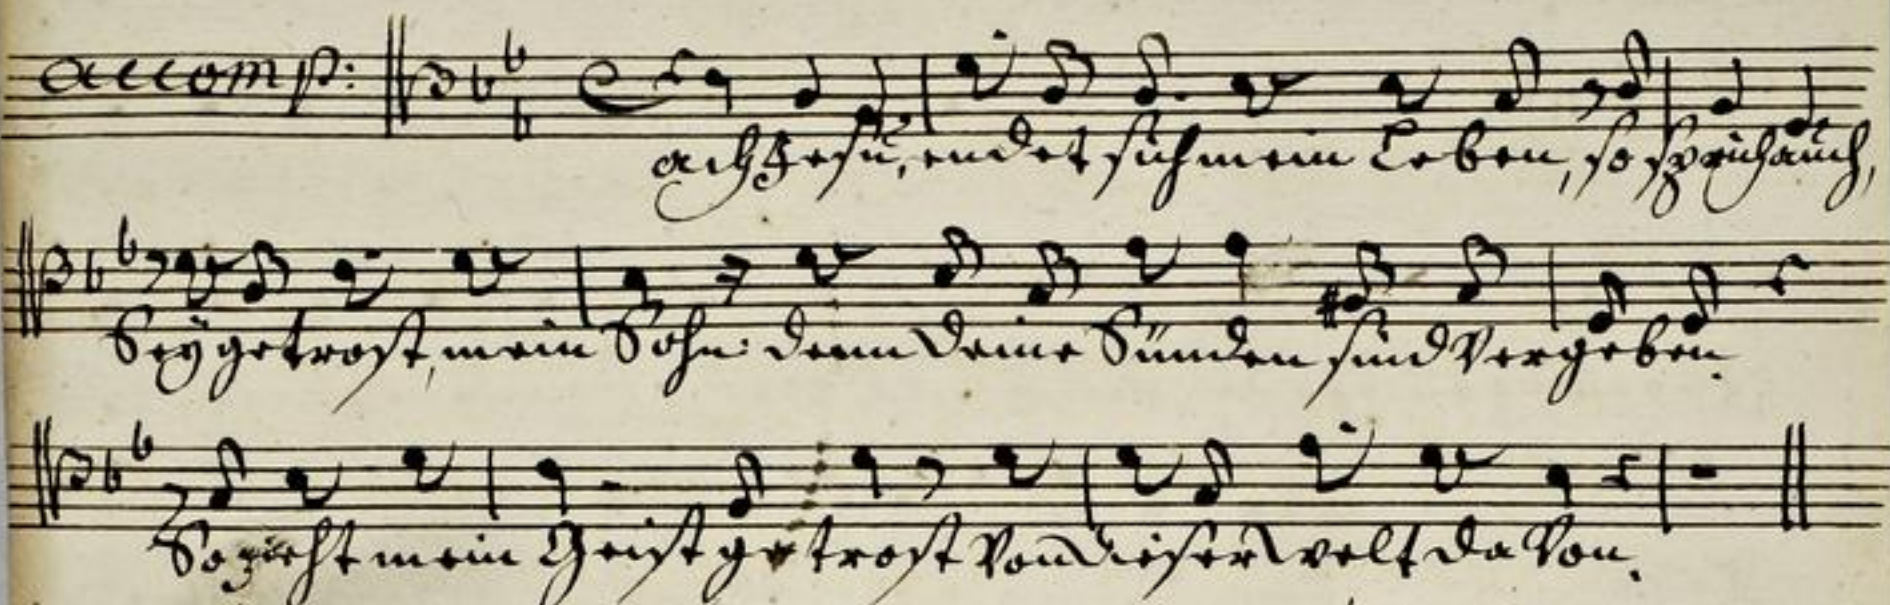 accomp:
ach Jesu, endet sich mein Leben, so sprich auch,
Seÿ getrost, mein Sohn: denn deine Sünden sind vergeben.
So zieht mein Geist getrost von dieser welt davon.